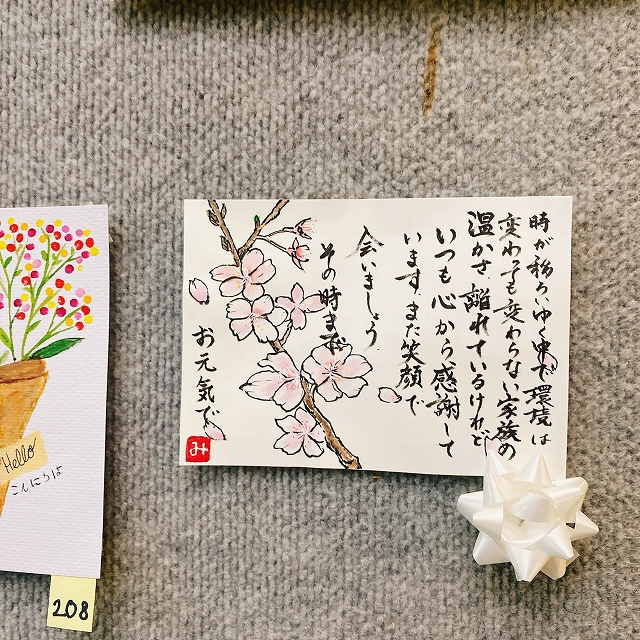 時が移ろいゆく中で環境は
変わっても変わらない家族の
温かさ 離れているけれど
いつも心から感謝して
います また笑顔で
会いましょう
その時まで
お元気で
み
Hello
こんにちは
208